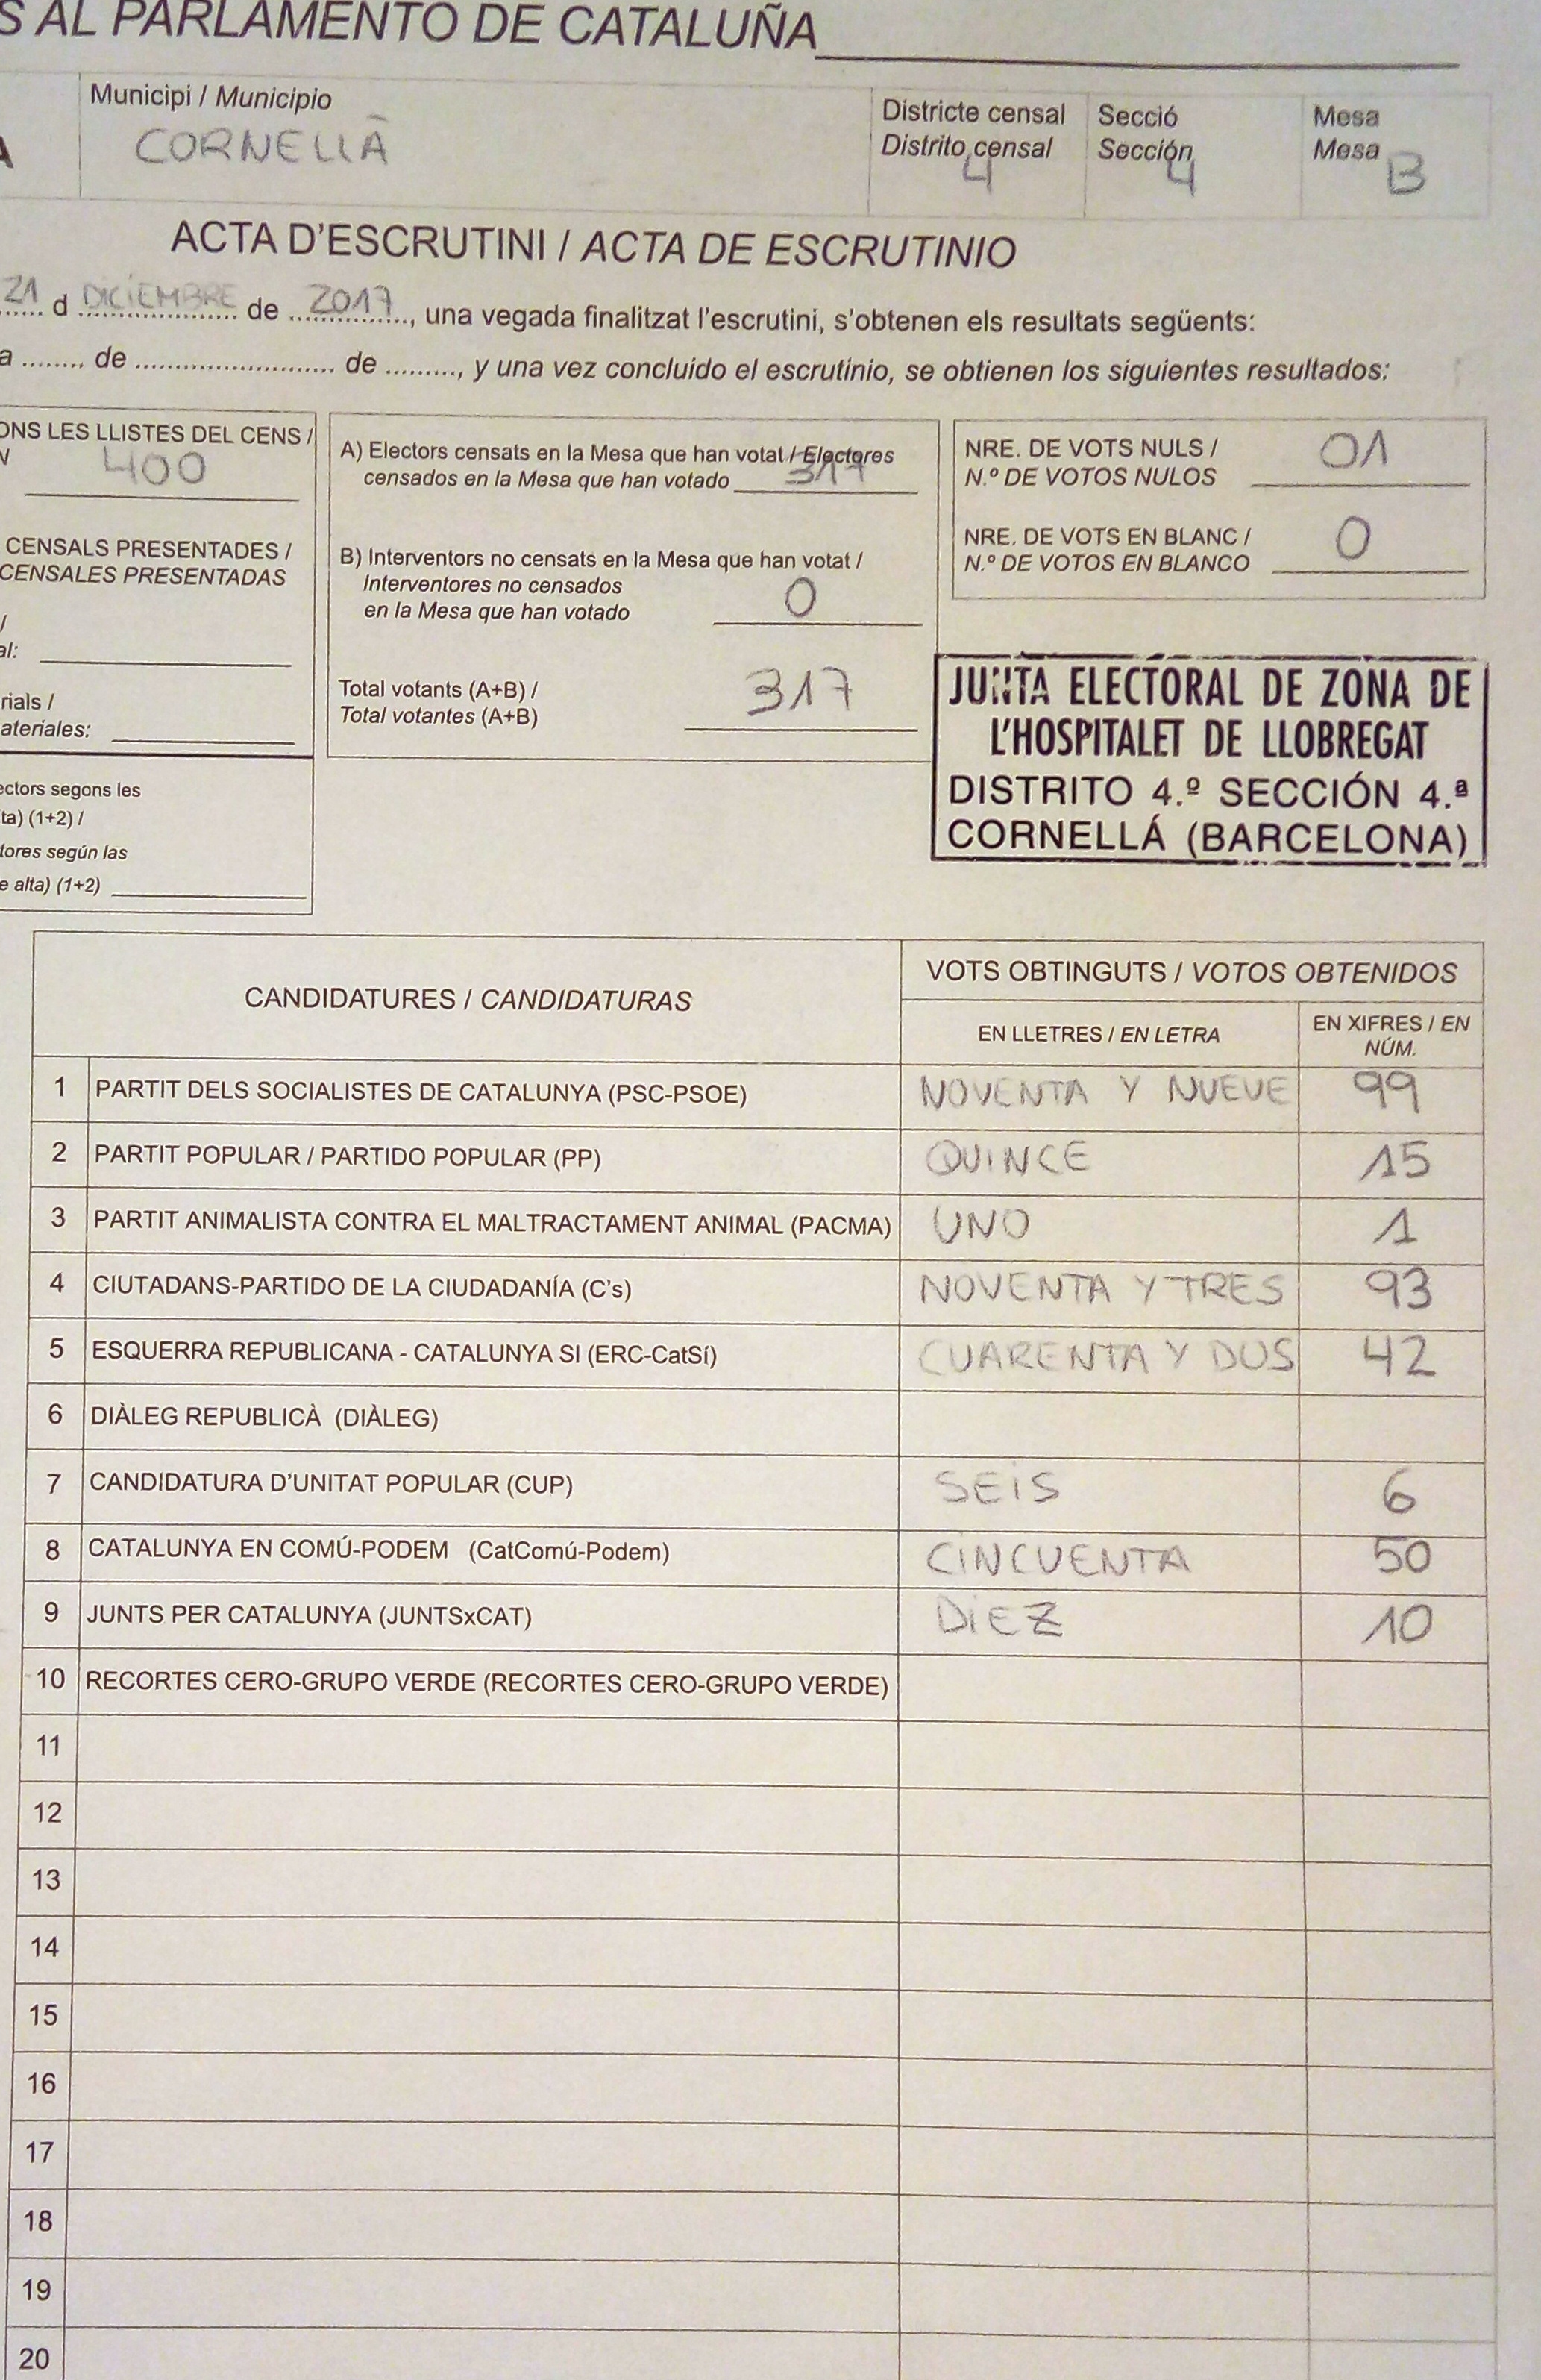 S AL PARLAMENTO DE CATALUÑA
Municipi / Municipio
CORNELLÀ
Districte censal
Distrito censal
4
Secció
Sección
4
Mesa
Mesa
B
A
ACTA D'ESCRUTINI / ACTA DE ESCRUTINIO
21 d DICIEMBRE de 2017, una vegada finalitzat l'escrutini, s'obtenen els resultats següents:
a ........ de ......................... de ........., y una vez concluido el escrutinio, se obtienen los siguientes resultados:
ONS LES LLISTES DEL CENS /
N
400
CENSALS PRESENTADES /
CENSALES PRESENTADAS
/
al:
rials /
ateriales:
ectors segons les
ta) (1+2) /
tores según las
e alta) (1+2)
A) Electors censats en la Mesa que han votat / Electores
censados en la Mesa que han votado 317
B) Interventors no censats en la Mesa que han votat /
Interventores no censados
en la Mesa que han votado 0
Total votants (A+B) /
Total votantes (A+B) 317
NRE. DE VOTS NULS /
N.º DE VOTOS NULOS 01
NRE. DE VOTS EN BLANC /
N.º DE VOTOS EN BLANCO 0
JUNTA ELECTORAL DE ZONA DE
L'HOSPITALET DE LLOBREGAT
DISTRITO 4.º SECCIÓN 4.ª
CORNELLÁ (BARCELONA)
CANDIDATURES / CANDIDATURAS
VOTS OBTINGUTS / VOTOS OBTENIDOS
EN LLETRES / EN LETRA
EN XIFRES / EN
NÚM.
1 PARTIT DELS SOCIALISTES DE CATALUNYA (PSC-PSOE) NOVENTA Y NUEVE 99
2 PARTIT POPULAR / PARTIDO POPULAR (PP) QUINCE 15
3 PARTIT ANIMALISTA CONTRA EL MALTRACTAMENT ANIMAL (PACMA) UNO 1
4 CIUTADANS-PARTIDO DE LA CIUDADANÍA (C's) NOVENTA Y TRES 93
5 ESQUERRA REPUBLICANA - CATALUNYA SI (ERC-CatSí) CUARENTA Y DOS 42
6 DIÀLEG REPUBLICÀ (DIÀLEG)
7 CANDIDATURA D'UNITAT POPULAR (CUP) SEIS 6
8 CATALUNYA EN COMÚ-PODEM (CatComú-Podem) CINCUENTA 50
9 JUNTS PER CATALUNYA (JUNTSxCAT) DIEZ 10
10 RECORTES CERO-GRUPO VERDE (RECORTES CERO-GRUPO VERDE)
11
12
13
14
15
16
17
18
19
20